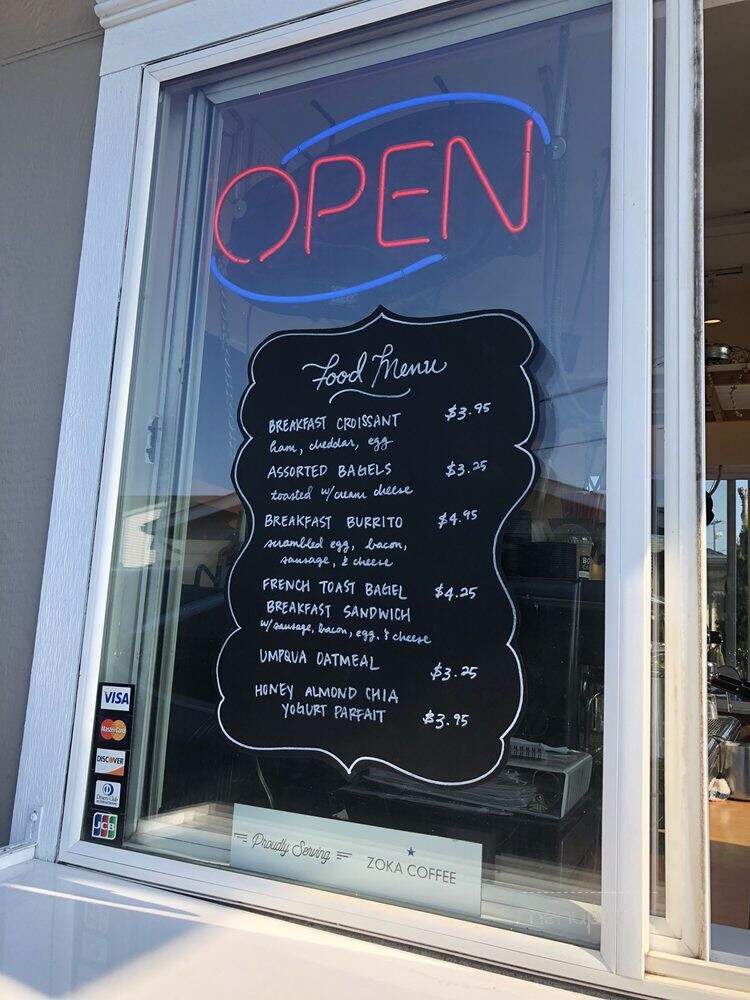 OPEN
Food Menu
BREAKFAST CROISSANT $3.95
ham, cheddar, egg
ASSORTED BAGELS $3.25
toasted w/cream cheese
BREAKFAST BURRITO $4.95
scrambled egg, bacon,
sausage, & cheese
FRENCH TOAST BAGEL $4.25
BREAKFAST SANDWICH
w/sausage, bacon, egg, & cheese
UMPQUA OATMEAL $3.25
HONEY ALMOND CHIA
YOGURT PARFAIT $3.95
VISA
MasterCard
DISCOVER
Diners Club
JCB
Proudly Serving
ZOKA COFFEE